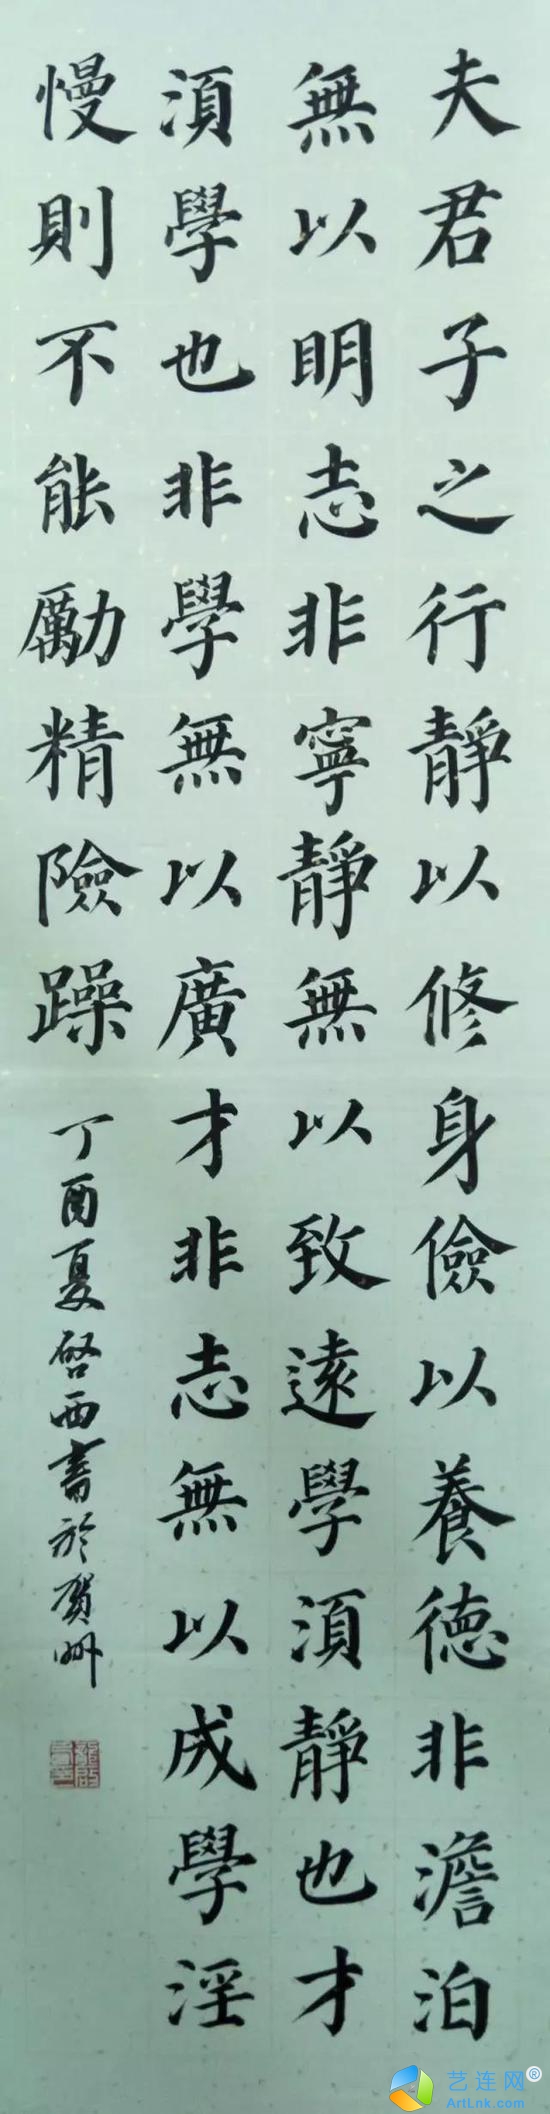 夫君子之行靜以修身儉以養德非澹泊
無以明志非寧靜無以致遠學湏靜也才
湏學也非學無以廣才非志無以成學淫
慢則不能勵精險躁
丁酉夏啓西書於賀州
艺连网®
ArtLnk.com